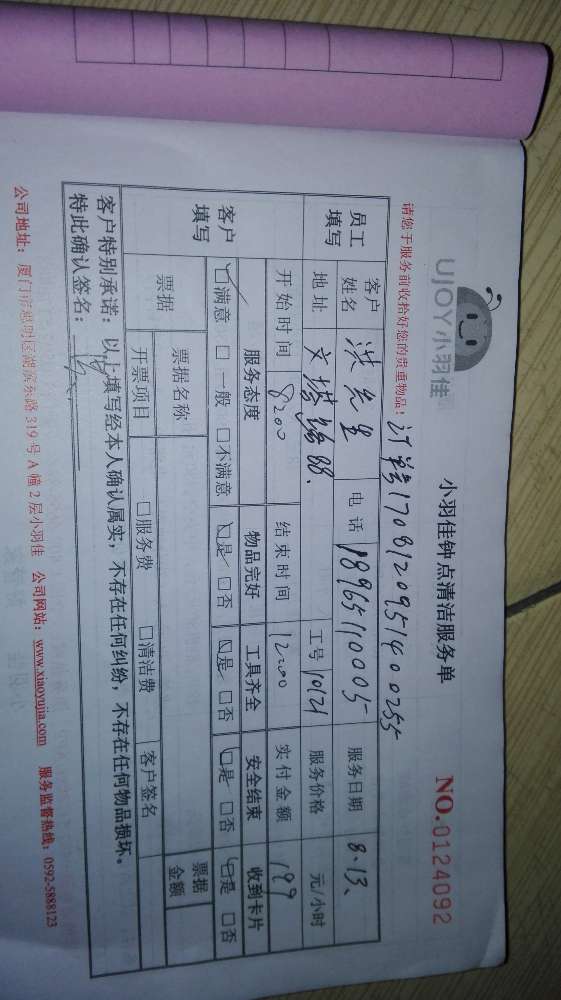 UJOY小羽佳
小羽佳钟点清洁服务单
NO.0124092
请您于服务前收拾好您的贵重物品！
订单号17081209514000255
员工填写 客户姓名 洪先生 电话 18965110005 服务日期 8.13、
地址 工号 10121 服务价格 元/小时
开始时间 8:00 结束时间 12:00 实付金额 199
客户填写 服务态度 物品完好 工具齐全 安全结束 收到卡片
☑满意 □一般 □不满意 ☑是 □否 ☑是 □否 ☑是 □否 ☑是 □否
票据 票据名称 票据金额
开票项目 □服务费 □清洁费 客户签名
客户特别承诺：以上填写经本人确认属实，不存在任何纠纷，不存在任何物品损坏。
特此确认签名：
公司地址：厦门市思明区湖滨东路319号A幢2层小羽佳 公司网站：www.xiaoyujia.com 服务监督热线：0592-5888123